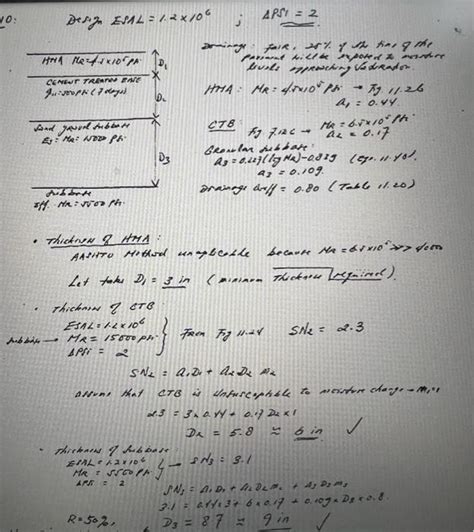 10: Design ESAL = 1.2x10⁶ ; ΔPSI = 2
HMA MR=4.5x10⁵ psi D1
CEMENT TREATED BASE
(7 days) D2
Sand gravel subbase
E3: MR: 15000 psi D3
eff. MR = 5500 psi
Drainage: fair, 25% of the time of the
pavement will be exposed to moisture
levels approaching saturation
HMA: MR = 4.5x10⁵ psi → Fig 11.26
a1 = 0.44
CTB: Fig 7.12c → MR = 6.5x10⁵ psi
a2 = 0.17
Granular subbase:
a3 = (log MR) - 0.839 (Eqn. 11.48)
a3 = 0.109
Drainage coeff = 0.80 (Table 11.20)
• Thickness of HMA:
AASHTO Method unaplicable because MR = 6.5x10⁵ >>
Let take D1 = 3 in (minimum Thickness required)
• Thickness of CTB:
ESAL = 1.2x10⁶
subbase → MR = 15000 psi } From Fig 11.24 SN2 = 2.3
ΔPSI = 2
SN2 = a1D1 + a2D2 m2
assume that CTB is unsusceptible to moisture change → m2=1
2.3 = 3x0.44 + 0.17 D2 x 1
D2 = 5.8 ≈ 6 in ✓
• Thickness of subbase
ESAL = 1.2x10⁶
MR = 5500 psi } → SN3 = 3.1
ΔPSI = 2
SN3 = a1D1 + a2D2m2 + a3D3m3
3.1 = 0.44x3 + 6x0.17 + 0.109xD3x0.8
R=50%, D3 = 8.7 ≈ 9 in ✓